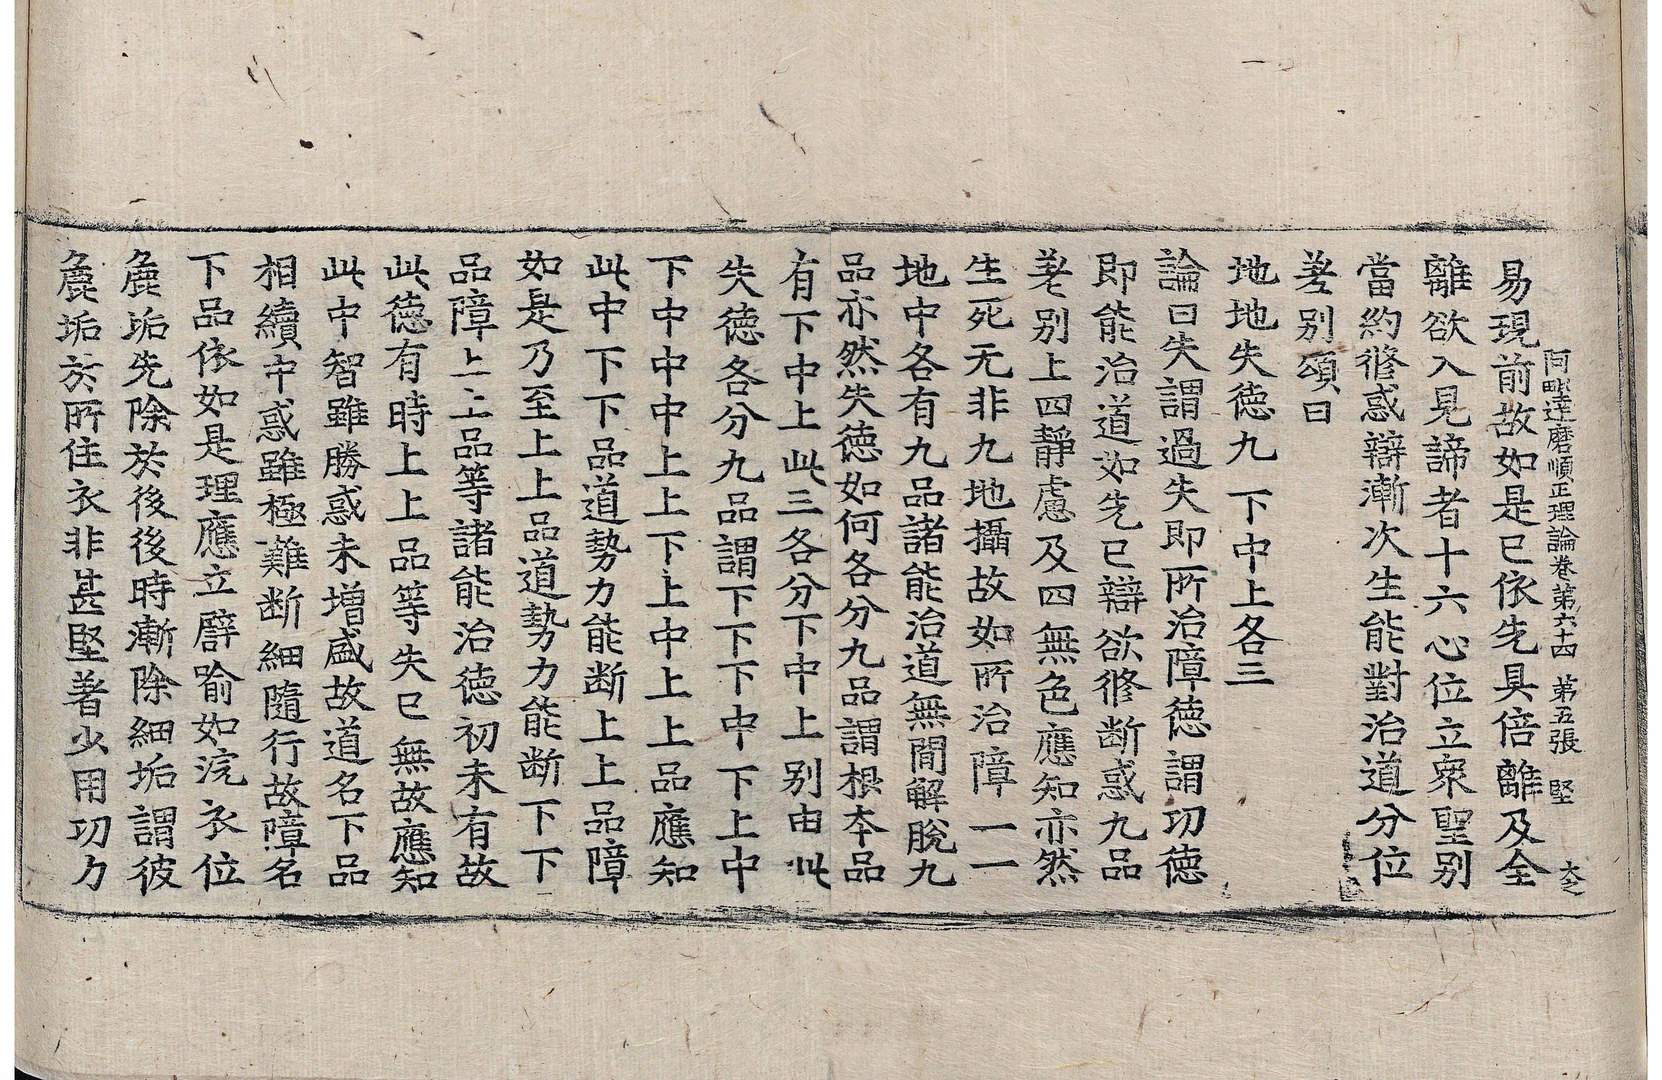 阿毗達磨順正理論卷第六十四 第五張 堅
大之
易現前故如是已依先具倍離及全
離欲入見諦者十六心位立衆聖別
當約修惑辯漸次生能對治道分位
差別頌曰
地地失德九 下中上各三
論曰失謂過失即所治障德謂功德
即能治道如先已辯欲修断惑九品
差別上四靜慮及四無色應知亦然
生死无非九地攝故如所治障一一
地中各有九品諸能治道無間解脫九
品亦然失德如何各分九品謂根本品
有下中上此三各分下中上別由此
失德各分九品謂下下下中下上中
下中中中上上下上中上上品應知
此中下下品道勢力能断上上品障
如是乃至上上品道勢力能断下下
品障上上品等諸能治德初未有故
此德有時上上品等失已無故應知
此中智雖勝惑未增盛故道名下品
相續中惑雖極難断細隨行故障名
下品依如是理應立譬喻如浣衣位
麁垢先除於後後時漸除細垢謂彼
麁垢於所住衣非甚堅著少用功力